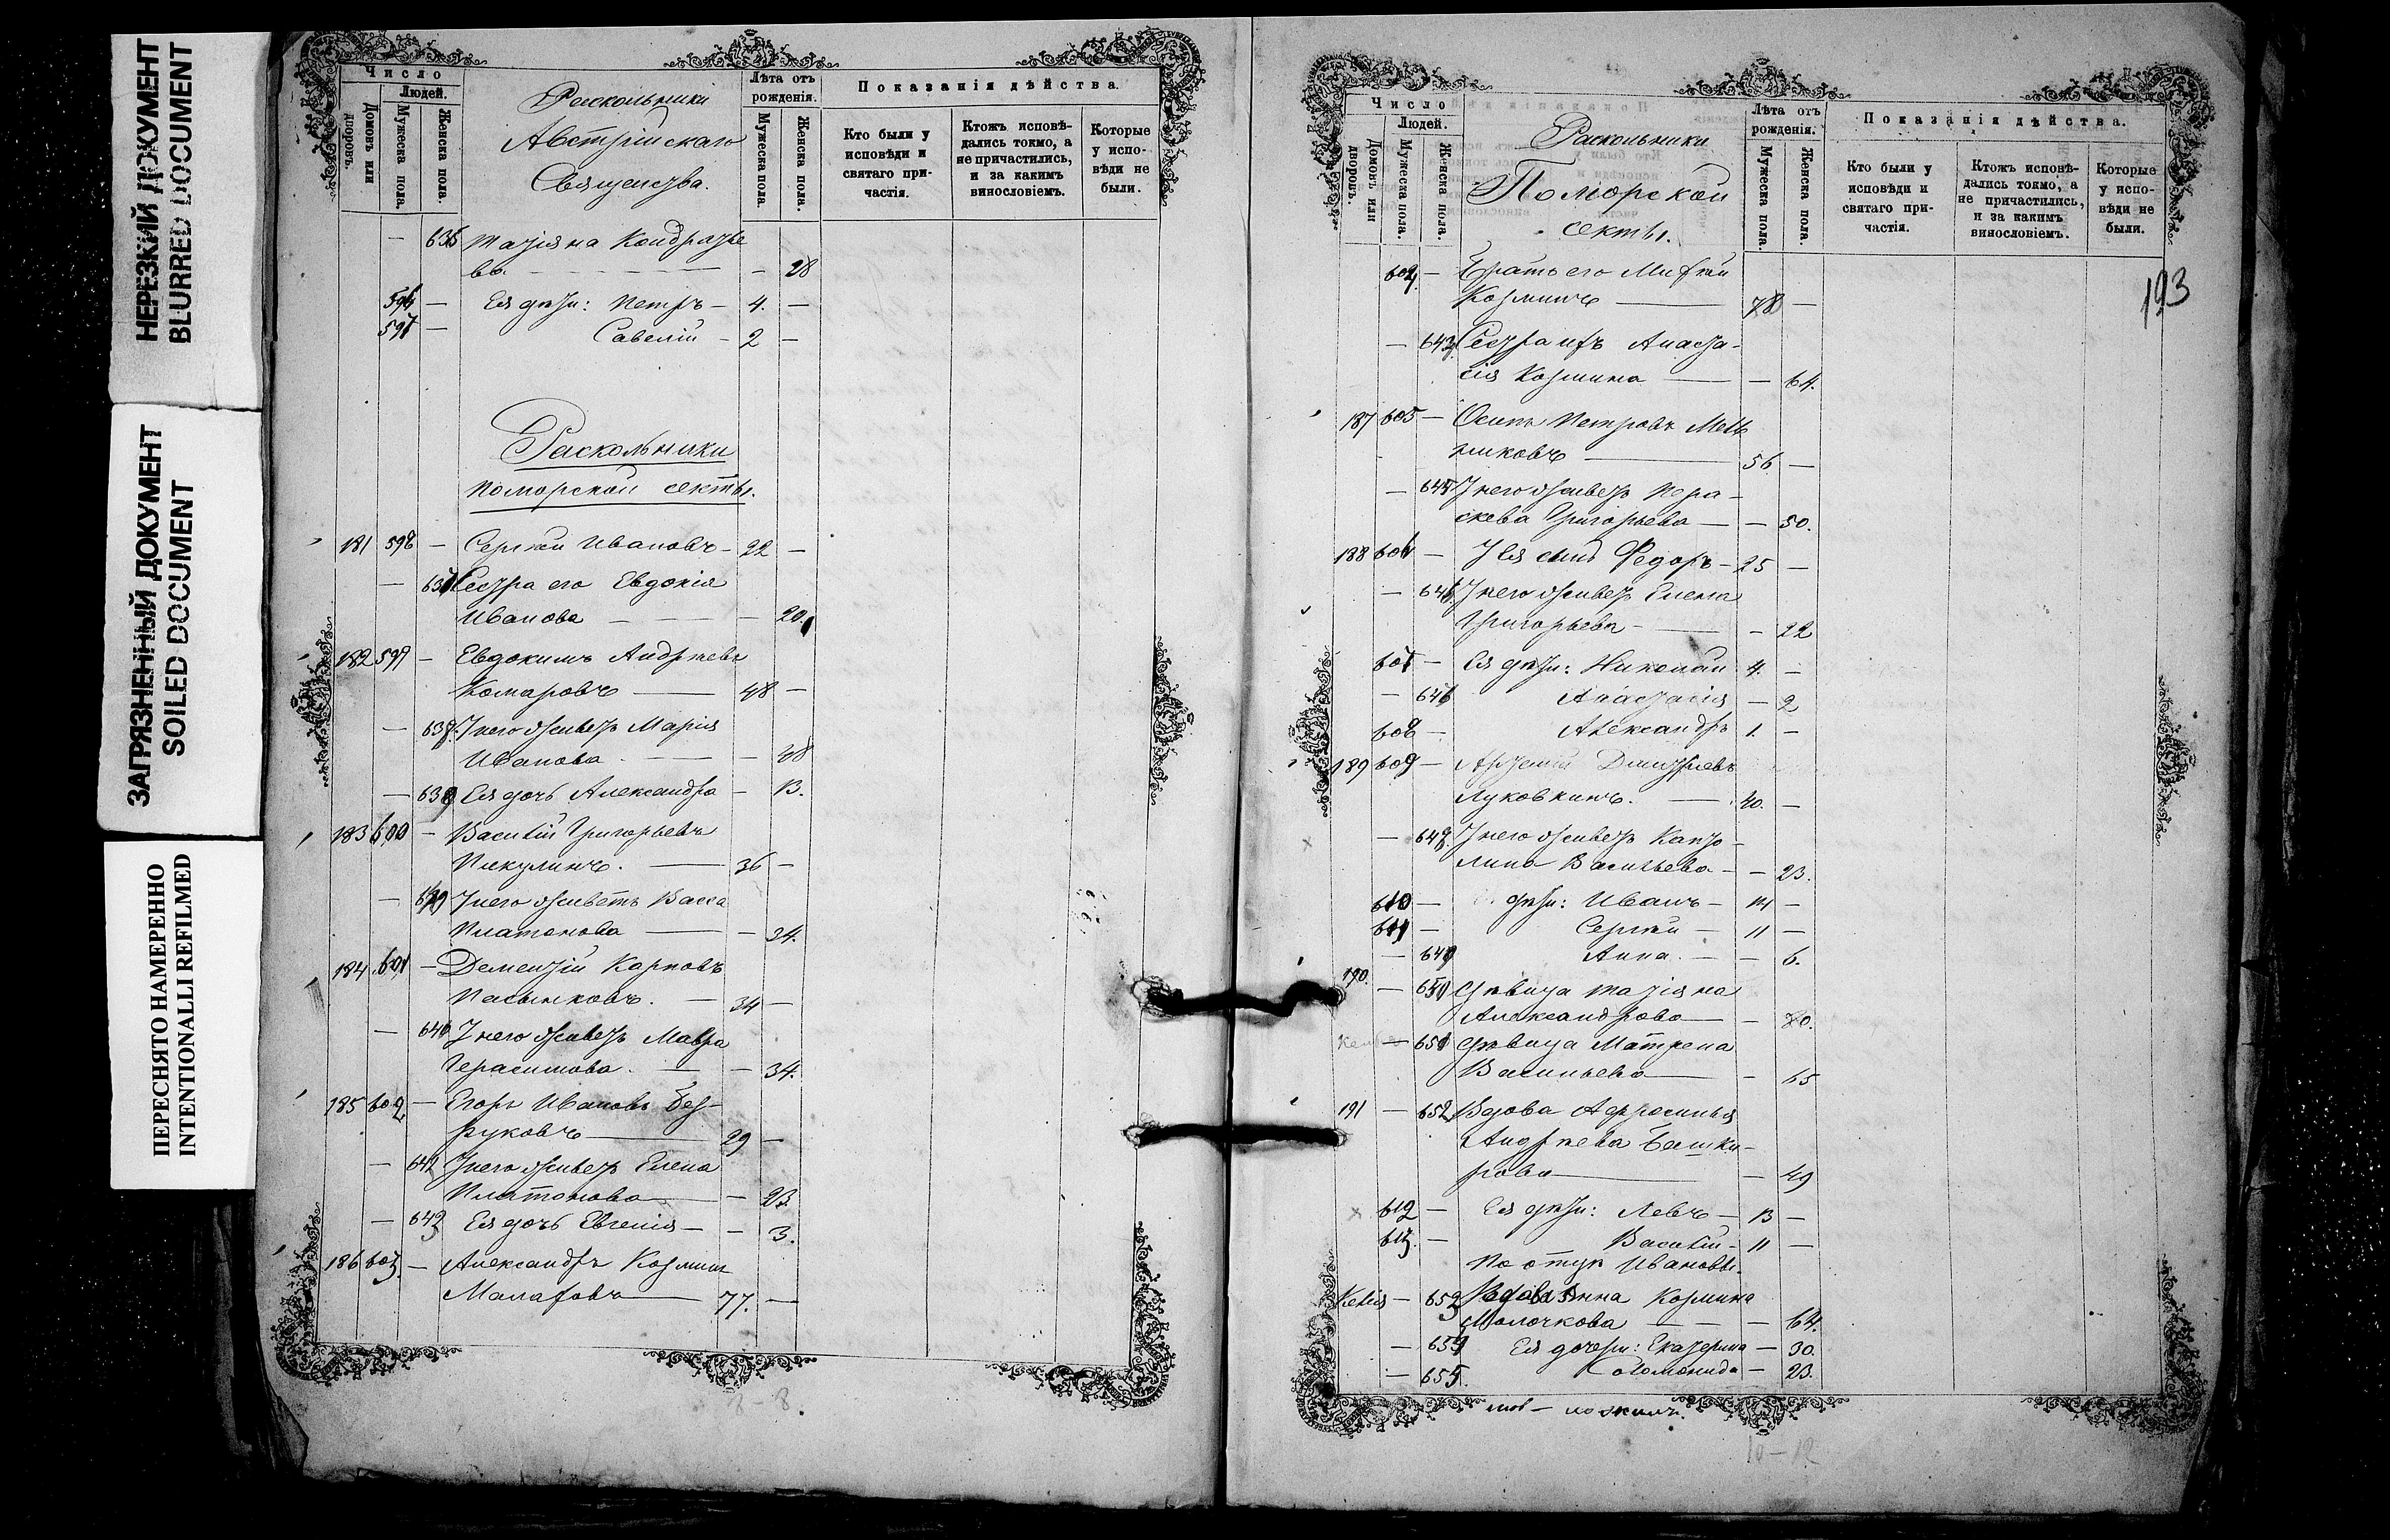 НЕРЕЗКИЙ ДОКУМЕНТ
BLURRED DOCUMENT
ЗАГРЯЗНЕННЫЙ ДОКУМЕНТ
SOILED DOCUMENT
ПЕРЕСНЯТО НАМЕРЕННО
INTENTIONALLI REFILMED
Число
Людей.
Домовъ или дворовъ.
Мужеска пола.
Женска пола.
Раскольники
Австрійскаго
Священства.
Лѣта отъ рожденія.
Мужеска пола.
Женска пола.
Показанія дѣйства.
Кто были у исповѣди и святаго причастія.
Ктожъ исповѣдались токмо, а не причастились, и за какимъ винословіемъ.
Которые у исповѣди не были.
— 636 Татіяна Кондратье
ва — — 28
596 — Ея дѣти: Петръ — 4. —
597 — Савелій — 2 —
Раскольники
поморской секты.
181 598 — Сергѣй Ивановъ — 22 —
— 637 Сестра его Евдокія
Иванова — — 20.
182 599 — Евдокимъ Андрѣевъ
Комаровъ — 48 —
— 638. У него живетъ Марія
Иванова — — 48
— 639 Ея дочь Александра — 13.
183 600 — Василій Григорьевъ
Пикулинъ. — 36 —
— У него живетъ Васса
Платонова — — 34.
184 601 — Дементій Карповъ
Пасынковъ. — 34 —
— У него живетъ Мавра
Герасимова. — — 34.
185 602 — Егоръ Ивановъ Без-
руковъ — 29 —
— 642 У него живетъ Елена
Платонова — — 23.
— 643 Ея дочь Евгенія — — 3.
186 603. — Александръ Козминъ
Малаховъ — 77. —
8 – 8.
Число
Людей.
Домовъ или дворовъ.
Мужеска пола.
Женска пола.
Раскольники
Поморской
секты.
Лѣта отъ рожденія.
Мужеска пола.
Женска пола.
Показанія дѣйства.
Кто были у исповѣди и святаго причастія.
Ктожъ исповѣдались токмо, а не причастились, и за какимъ винословіемъ.
Которые у исповѣди не были.
193
604. — Братъ его Михѣй
Козминъ — 78 —
— Сестра ихъ Анаста-
сія Козмина — — 64.
187 605 — Осипъ Петровъ Мель
никовъ — 56 —
— 645 У него живетъ Пара-
скева Григорьева — — 50.
188 606 — У ея сынъ Федоръ — 25 —
— 646 У него живетъ Елена
Григорьева — — 22
607 — Ея дѣти: Николай 4. —
— Анастасія — 2
608 — Александръ 1. —
189 609 — Артемій Дмитріевъ
Луковкинъ. — 40. —
— 648. У него живетъ Капто
лина Васильева — — 23.
610 — дѣти: Иванъ — 14 —
611 — Сергѣй — 11 —
— 649 Анна. — — 6.
190. — 650 Дѣвица Татіяна
Александрова — — 80.
— 651 Дѣвица Матрена
Васильева — — 65
191 — 652 Вдова Афросинья
Андрѣева Башки-
рова — — 49
612 — Ея дѣти: Левъ — 13 —
613. — Василій — 11 —
По отцѣ Ивановы.
Келія — 653 Вдова Анна Козмина
Молочкова — — 64.
— 654 Ея дочери: Екатерина — 30.
— 655. Соломонида — 23.
10 – 12